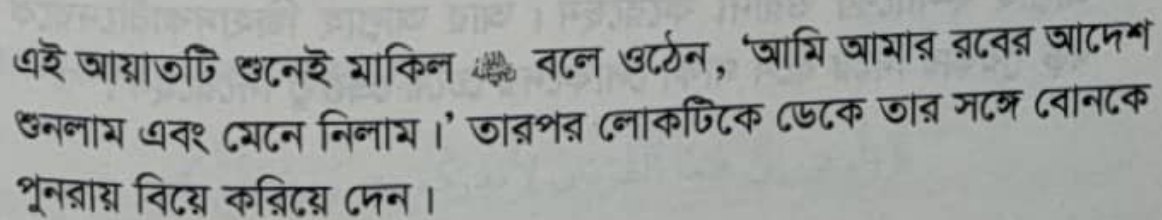 এই আয়াতটি শুনেই মাকিল ﷺ বলে ওঠেন, ‘আমি আমার রবের আদেশ
শুনলাম এবং মেনে নিলাম।’ তারপর লোকটিকে ডেকে তার সঙ্গে বোনকে
পুনরায় বিয়ে করিয়ে দেন।